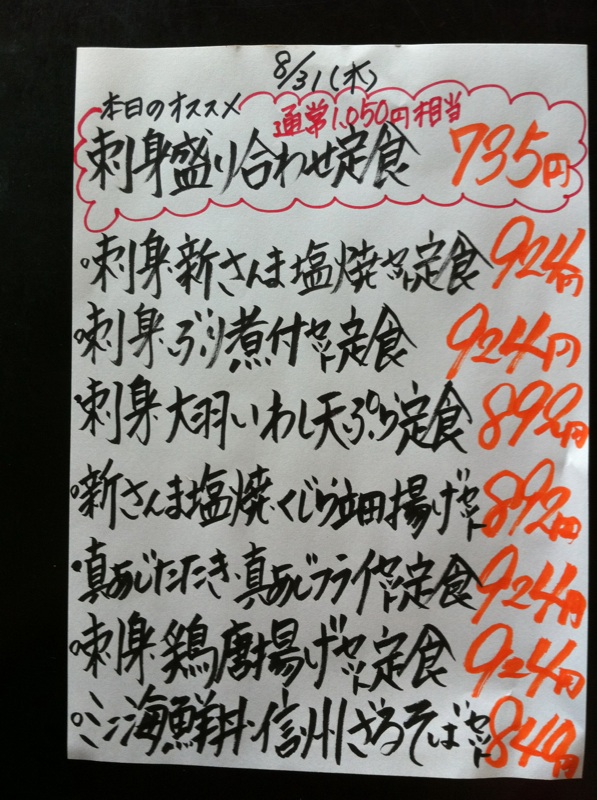 8/31(木)
本日のオススメ
通常1,050円相当
刺身盛り合わせ定食 735円
・刺身・新さんま塩焼セット定食 924円
・刺身・ぶり煮付セット定食 924円
・刺身・大羽いわし天ぷら定食 892円
・新さんま塩焼・くじら竜田揚げセット 892円
・真あじたたき・真あじフライセット定食 924円
・刺身・鶏唐揚げセット定食 924円
海鮮丼・信州ざるそばセット 840円